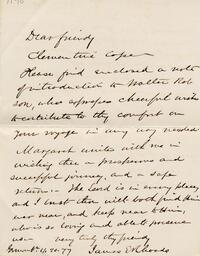 Dear friend
Clementine Cope
Please find enclosed a note
of introduction to Walter Rob
son, who expresses cheerful wish
to contribute to thy comfort on
your voyage in any way needed
Margaret unites with me in
wishing thee a prosperous and
successful journey, and a safe
return. The Lord is in every place,
and I trust thou will both find Him
ever near, and keep near to Him,
who is so loving and able to preserve
very truly thy friend
James E Rhoads